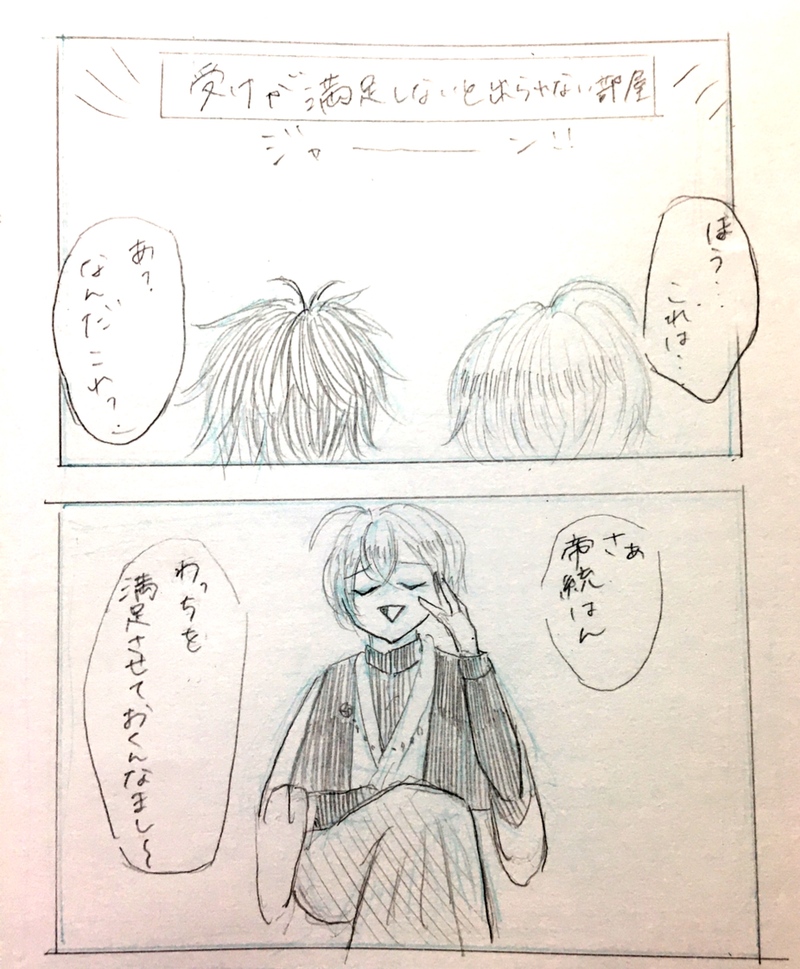 受けが満足しないと出られない部屋
ジャーーン!!
ほう…
これは…
あ?
なんだこれっ…
さぁ
帝統はん
わっちを
満足させておくんなまし〜